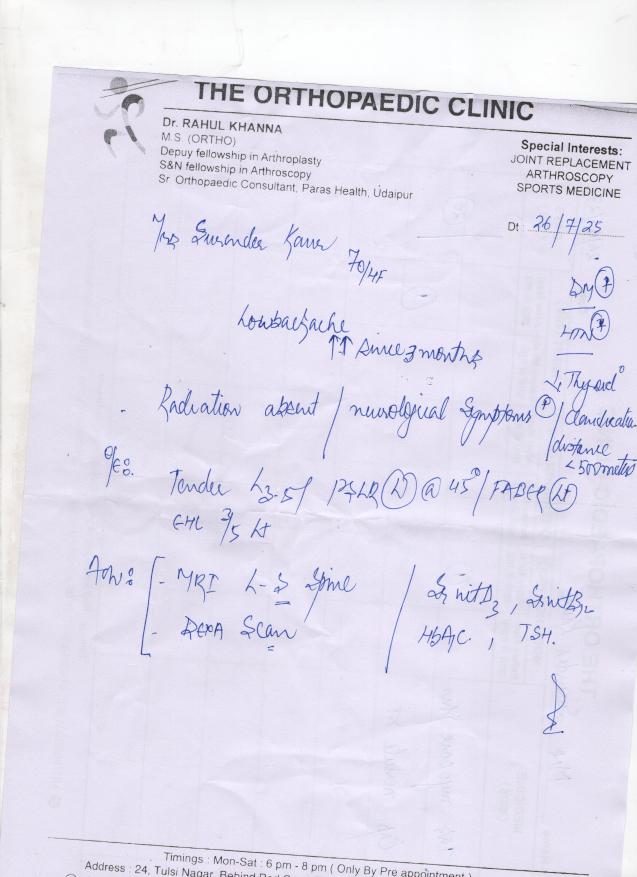 THE ORTHOPAEDIC CLINIC
Dr. RAHUL KHANNA
M.S. (ORTHO)
Depuy fellowship in Arthroplasty
S&N fellowship in Arthroscopy
Sr. Orthopaedic Consultant, Paras Health, Udaipur
Special Interests:
JOINT REPLACEMENT
ARTHROSCOPY
SPORTS MEDICINE
Dt : 26/7/25
Mrs Surender Kaur
70/F
DM +
HTN +
↓ Thyroid
Low backache
↑↑ since 3 months
- Radiation absent / neurological symptoms + / Claudication
distance
< 500 meters
O/E:
Tender L3-5 / PSLR Lt @ 45° / FABER Lt
EHL 3/5 Lt
Adv: - MRI L-S Spine
- DEXA Scan
S. vit D3, S. vit B12
HbA1C, TSH.
Timings : Mon-Sat : 6 pm - 8 pm ( Only By Pre appointment )
Address : 24, Tulsi Nagar, Behind